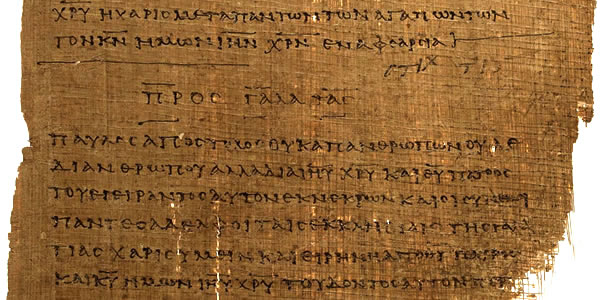 ΧΡΥ Η ΧΑΡΙϹ ΜΕΤΑ ΠΑΝΤΩΝ ΤΩΝ ΑΓΑΠΩΝΤΩΝ
ΤΟΝ ΚΝ ΗΜΩΝ ΙΗΝ ΧΡΝ ΕΝ ΑΦΘΑΡϹΙΑ
ϹΤΙΧ
ΠΡΟϹ ΓΑΛΑΤΑϹ
ΠΑΥΛΟϹ ΑΠΟϹΤΟΛΟϹ ΟΥΚ ΑΠ ΑΝΘΡΩΠΩΝ ΟΥΔΕ
ΔΙ ΑΝΘΡΩΠΟΥ ΑΛΛΑ ΔΙΑ ΙΗΥ ΧΡΥ ΚΑΙ ΘΥ ΠΑΤΡΟϹ
ΤΟΥ ΕΓΕΙΡΑΝΤΟϹ ΑΥΤΟΝ ΕΚ ΝΕΚΡΩΝ ΚΑΙ ΟΙ ϹΥΝ
ΠΑΝΤΕϹ ΑΔΕΛΦΟΙ ΤΑΙϹ ΕΚΚΛΗϹΙΑΙϹ ΤΗϹ ΓΑΛΑ
ΤΙΑϹ ΧΑΡΙϹ ΥΜΙΝ ΚΑΙ ΕΙΡΗΝΗ ΑΠΟ ΘΥ
ΚΑΙ ΚΥ ΗΜΩΝ ΙΗΥ ΧΡΥ ΤΟΥ ΔΟΝΤΟϹ ΑΥΤΟΝ